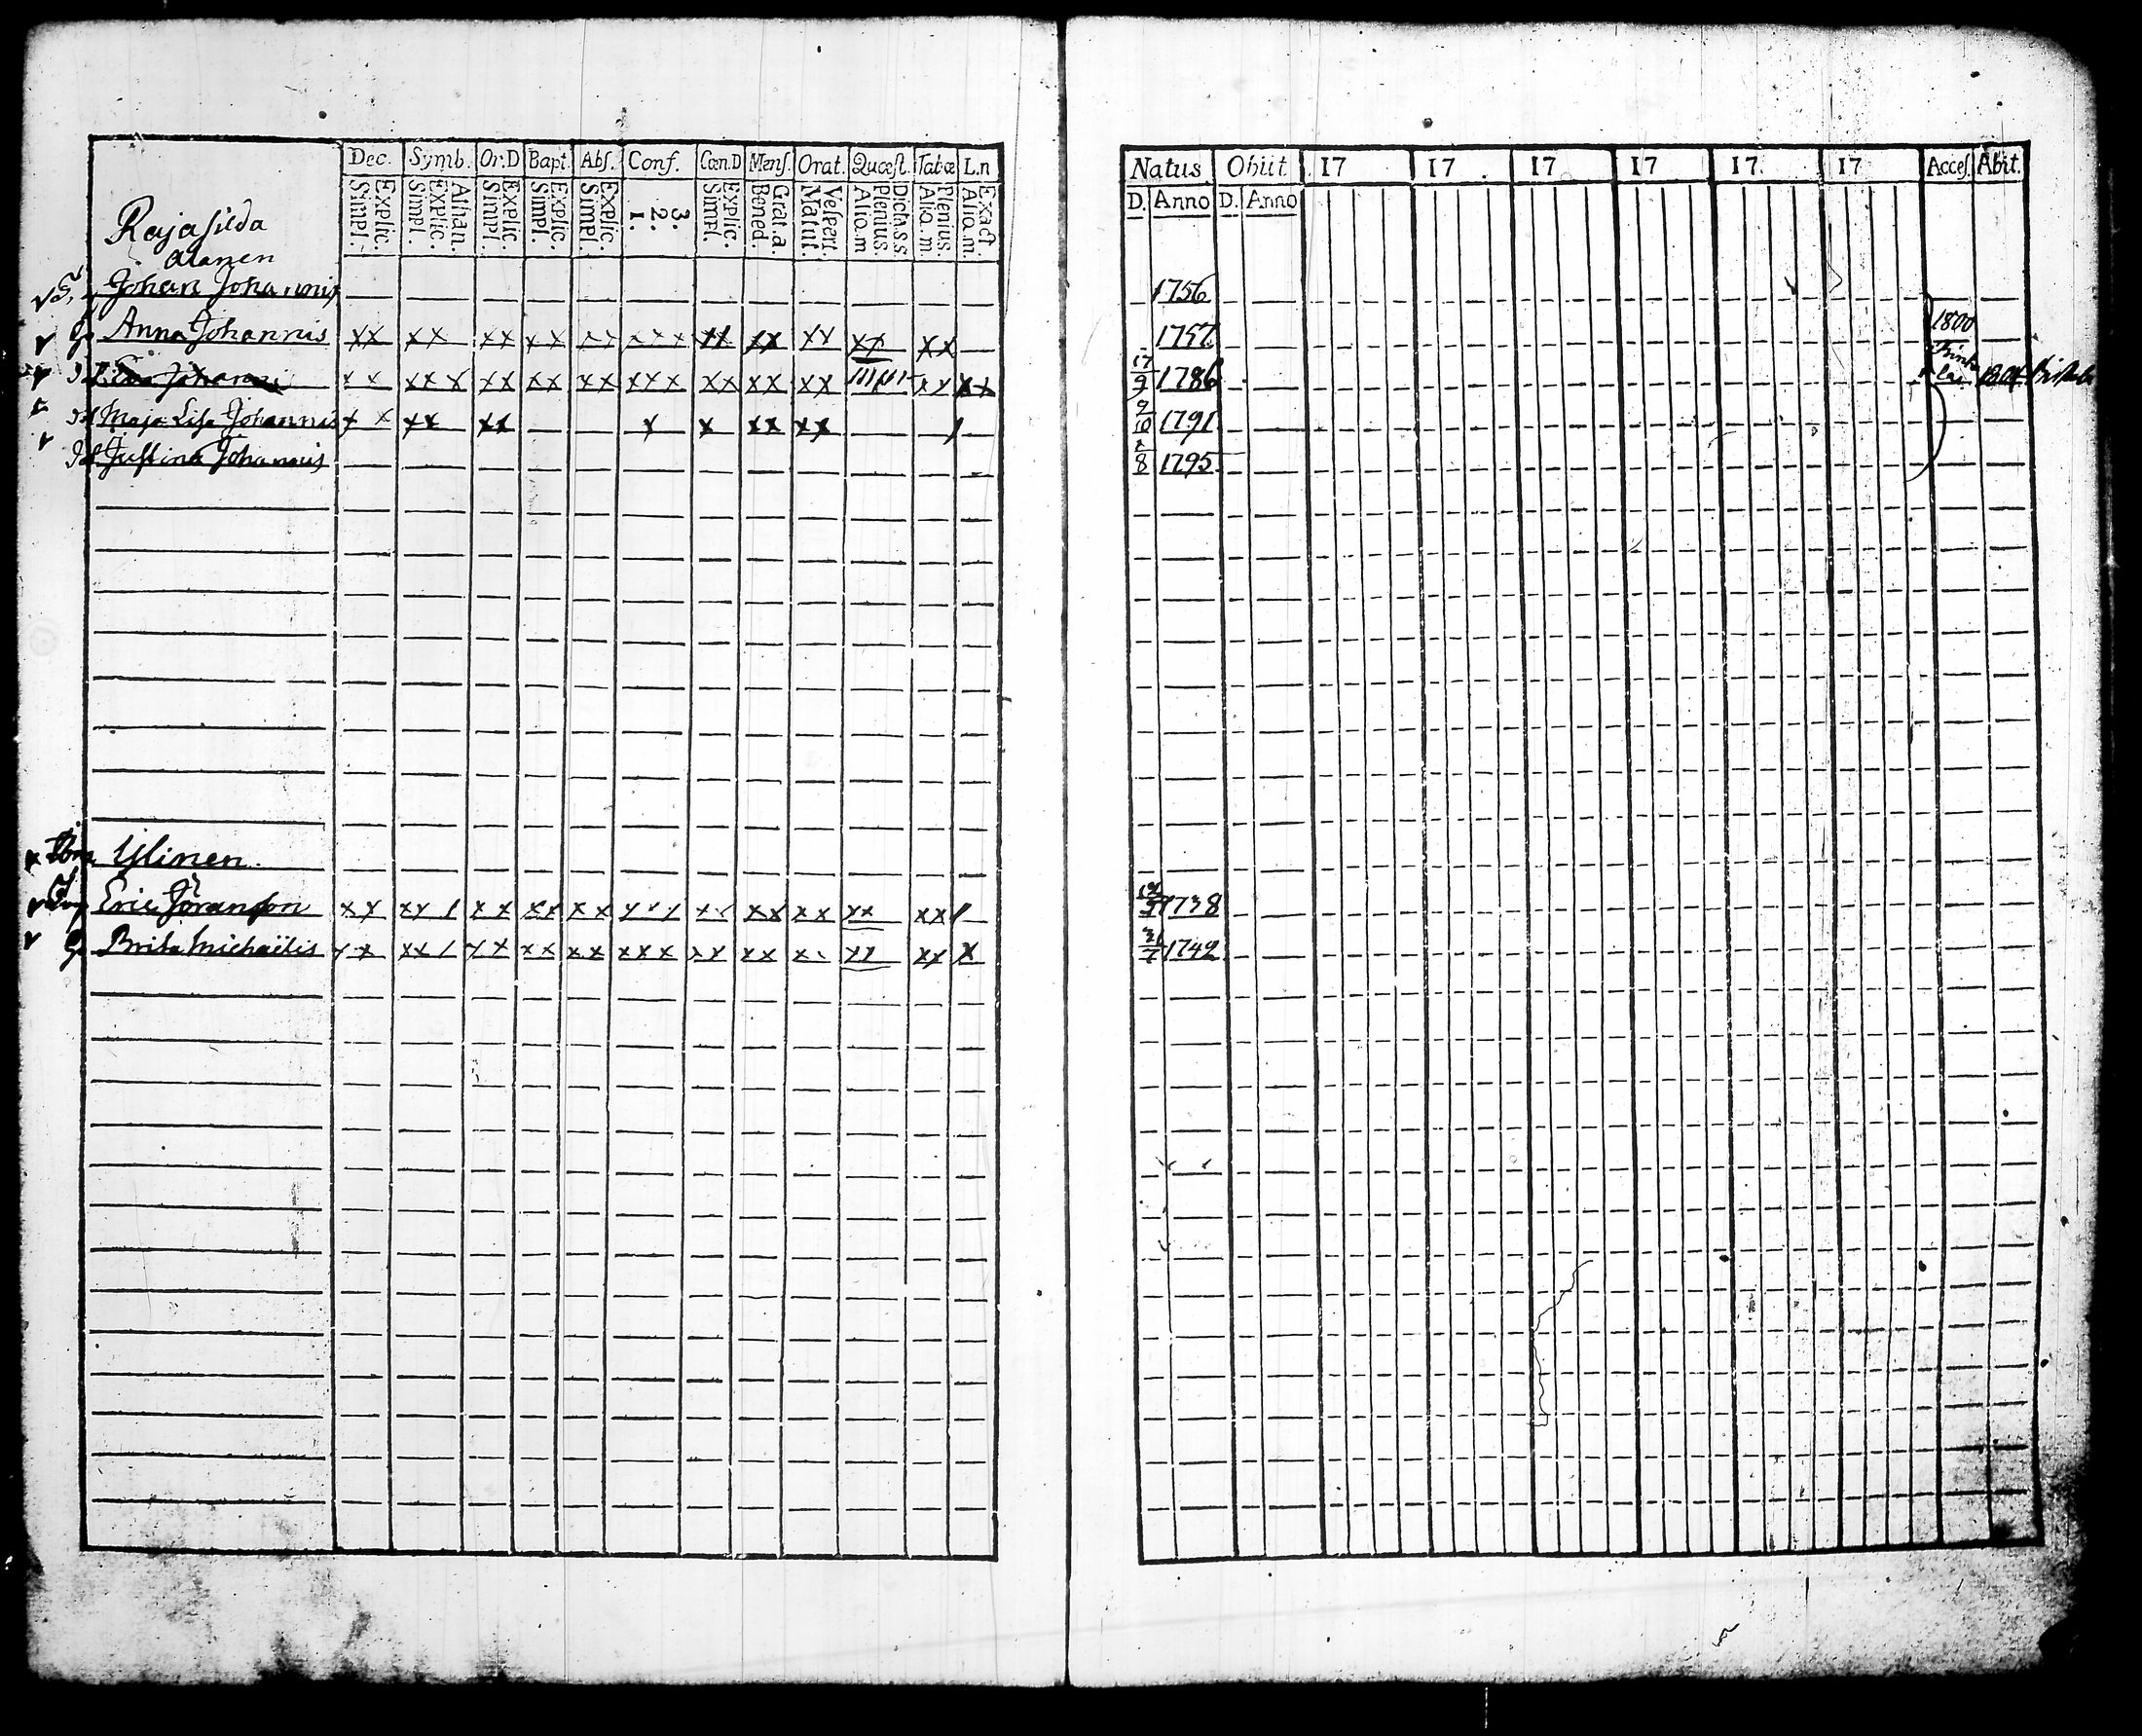 Dec. Symb. Or.D Bapt. Abſ. Conf. Cœn.D Menſ. Orat. Quæſt. Tabæ L.n
Simpl. Explic. Simpl. Explic. Athan. Simpl. Explic. Simpl. Explic. Simpl. Explic. 1. 2. 3. Simpl. Explic. Bened. Grat.a. Matut. Veſpert. Aliq.m Plenius. Dicta.s.s. Aliq.m. Plenius. Aliq.m. Exact
Natus Obiit 17 17 17 17 17. 17 Acceſ. Abit.
D. Anno D. Anno
Rajasilda
Alanen
Johan Johannis 1756
Anna Johannis xx xx xx xx xx xxx xx xx xx xx xx 1757 1800
Johanni xx xxx xx xx xx xxx xx xx xx xx xx 17/9 1786
Maja Lisa Johannis x x xx xx x x xx xx 9/10 1791
Justina Johannis 1795
Ylinen.
Eric Jöranson xx xx / xx xx xx xxx xx xx xx xx xx / 1738
Brita Michaëlis xx xx / xx xx xx xxx xx xx xx xx x 1742